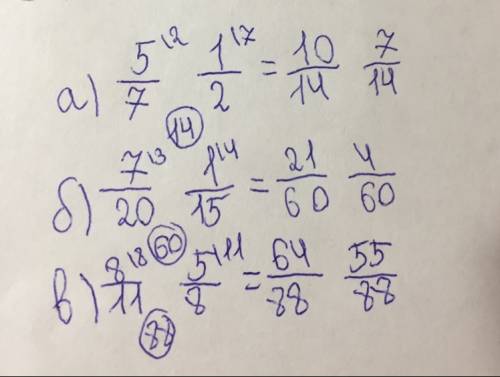 а) 5/7 \2 1/2 \7 = 10/14 7/14
(14)
б) 7/20 \3 1/15 \4 = 21/60 4/60
(60)
в) 8/11 \8 5/8 \11 = 64/88 55/88
(88)